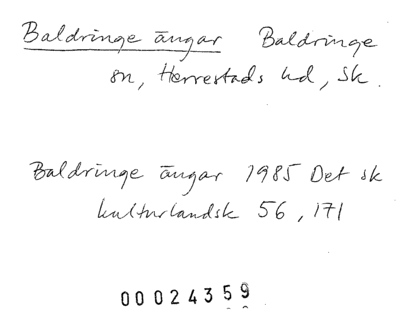 Baldringe ängar Baldringe
sn, Herrestads hd, Sk.
Baldringe ängar 1985 Det sk
kulturlandsk 56, 171
00024359